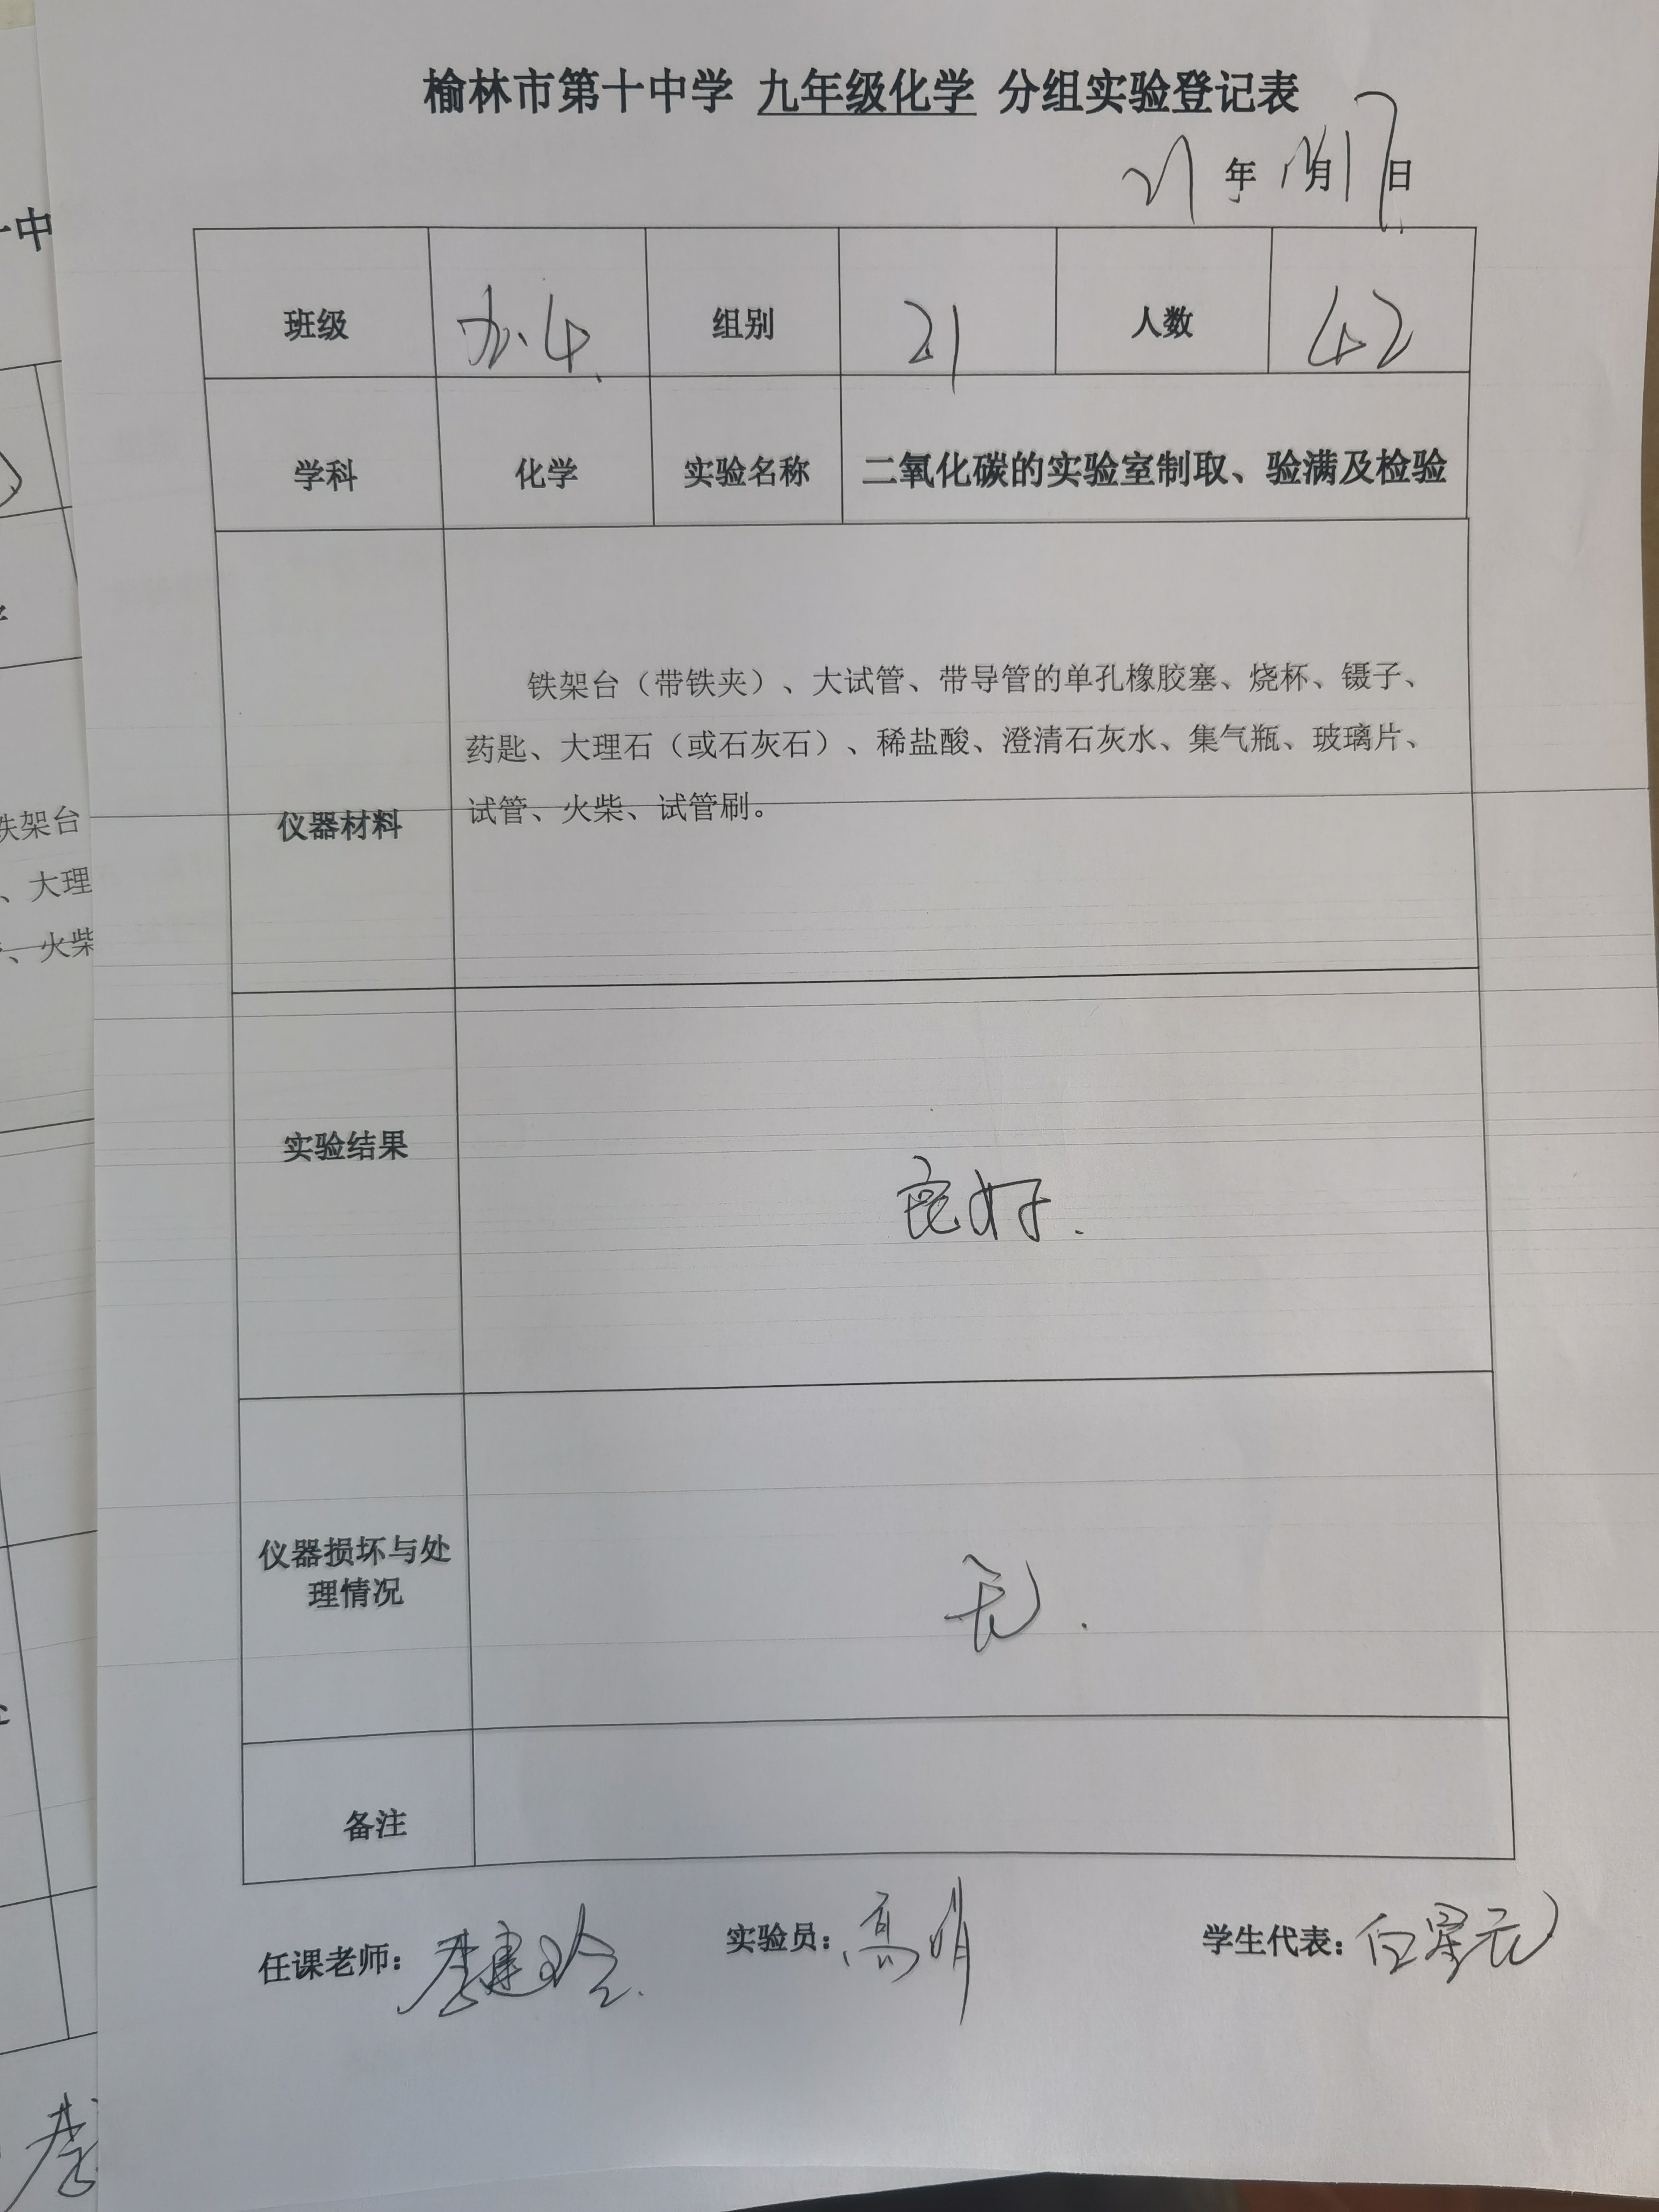 榆林市第十中学 九年级化学 分组实验登记表
21年 月17日
班级 九.4 组别 21 人数 42
学科 化学 实验名称 二氧化碳的实验室制取、验满及检验
仪器材料
铁架台（带铁夹）、大试管、带导管的单孔橡胶塞、烧杯、镊子、
药匙、大理石（或石灰石）、稀盐酸、澄清石灰水、集气瓶、玻璃片、
试管、火柴、试管刷。
实验结果 良好.
仪器损坏与处
理情况
无.
备注
任课老师： 实验员：高 学生代表：白星元
一中
铁架台
、大理
、火柴